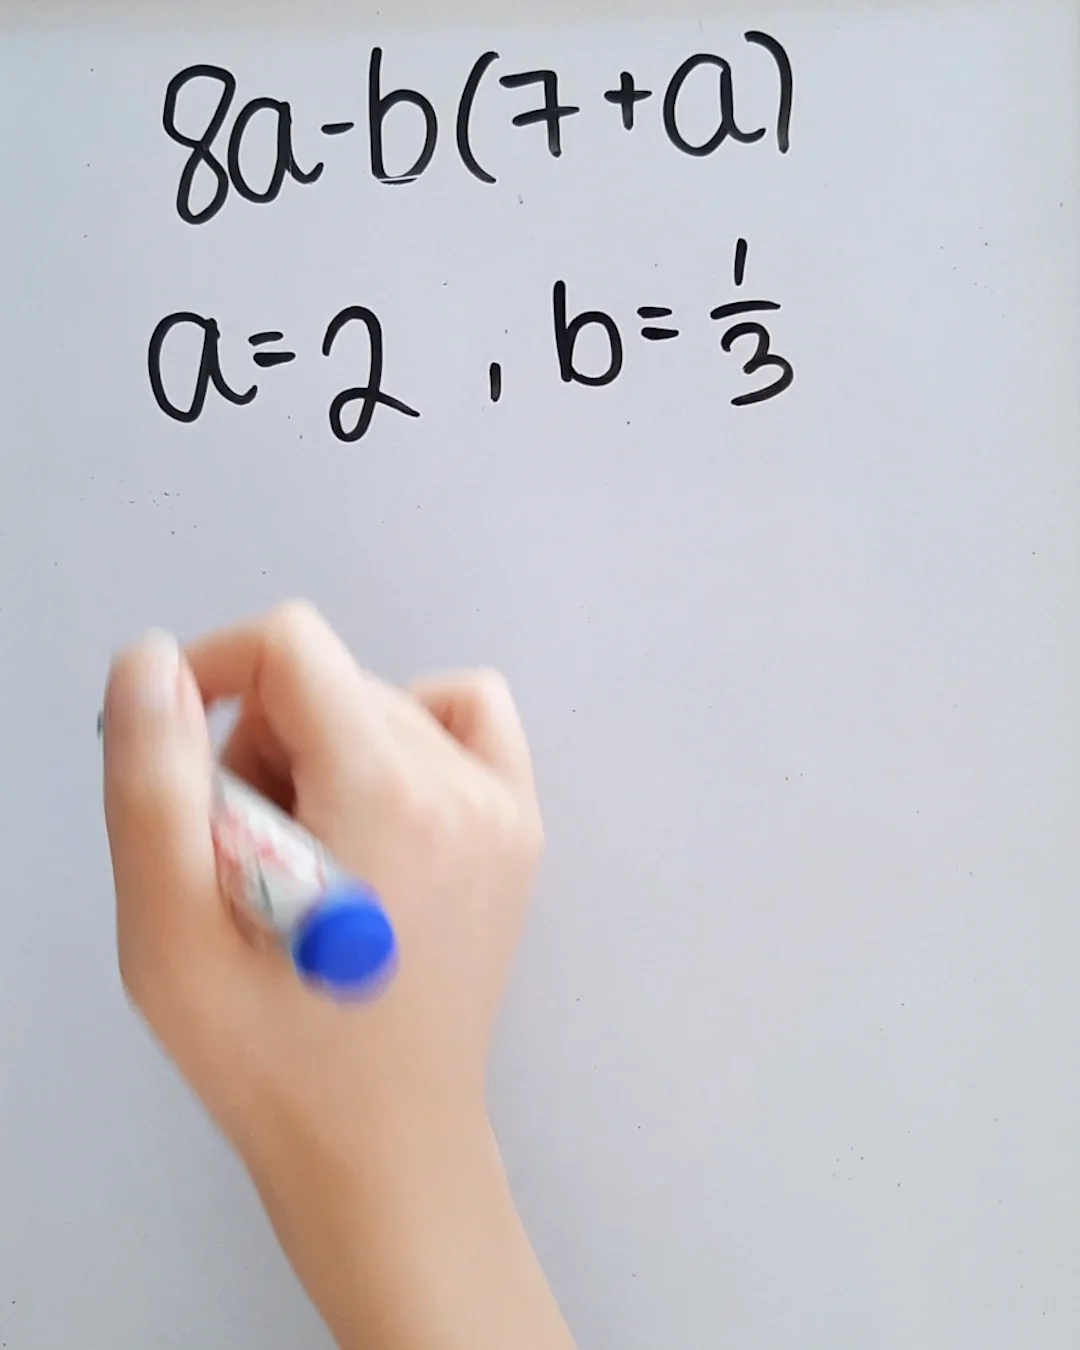 8a-b(7+a)
a=2 , b=1/3